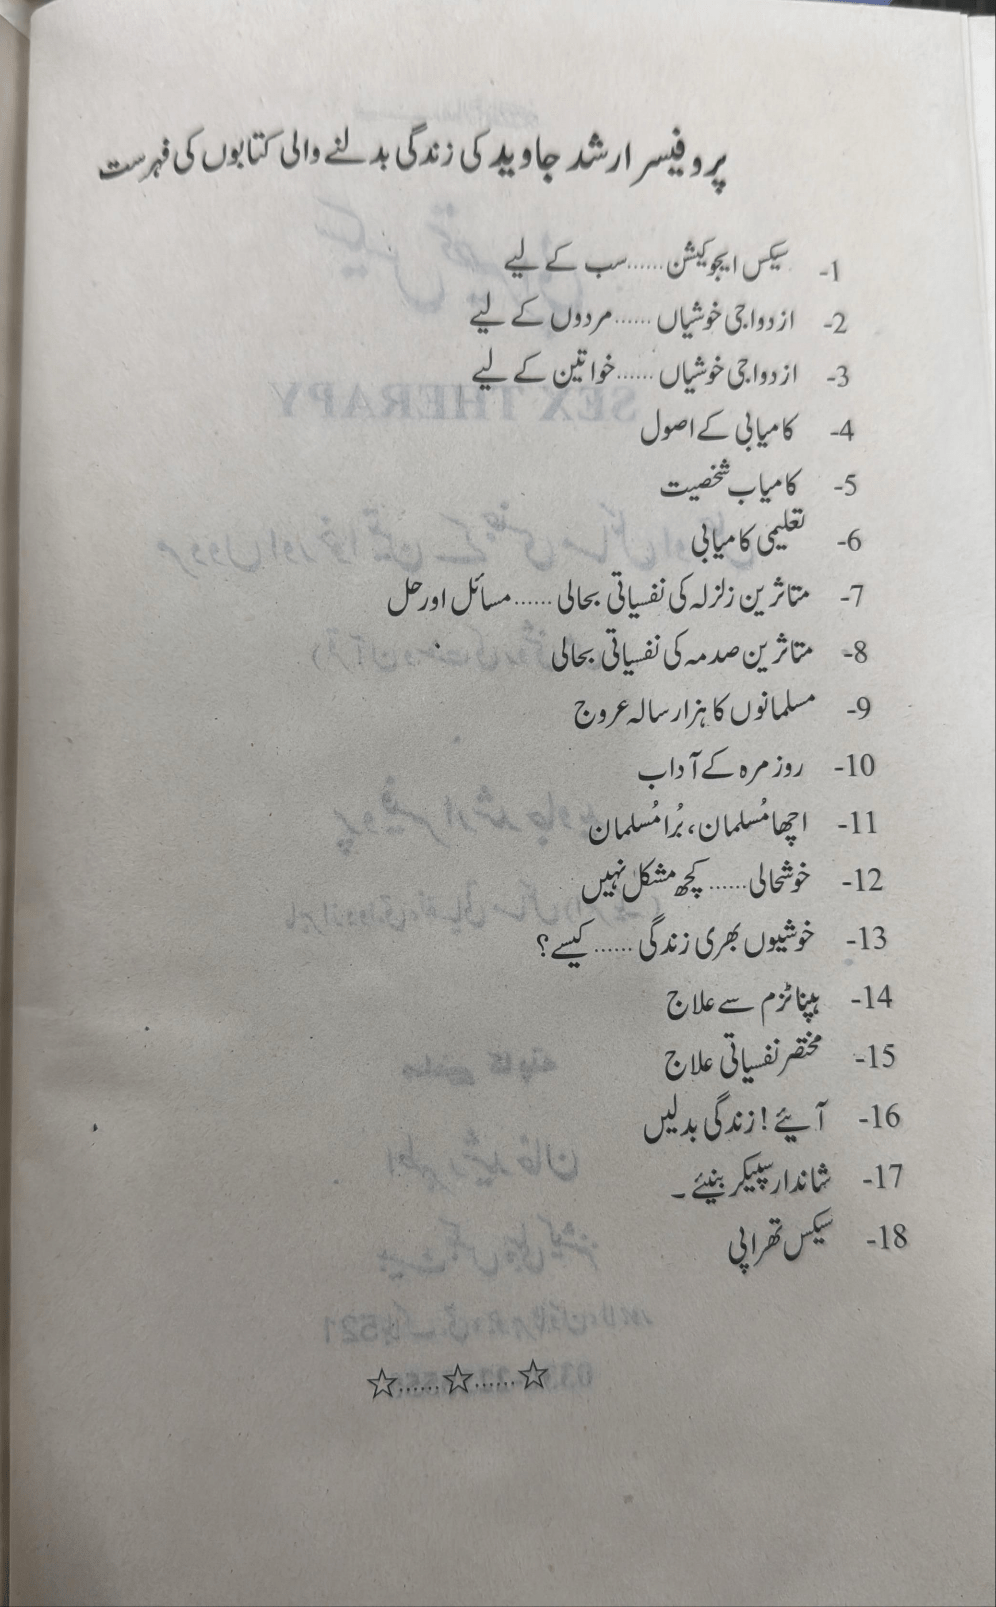 پروفیسر ارشد جاوید کی زندگی بدلنے والی کتابوں کی فہرست
1- سیکس ایجوکیشن ...... سب کے لیے
2- ازدواجی خوشیاں ...... مردوں کے لیے
3- ازدواجی خوشیاں ...... خواتین کے لیے
4- کامیابی کے اصول
5- کامیاب شخصیت
6- تعلیمی کامیابی
7- متاثرین زلزلہ کی نفسیاتی بحالی ...... مسائل اور حل
8- متاثرین صدمہ کی نفسیاتی بحالی
9- مسلمانوں کا ہزار سالہ عروج
10- روزمرہ کے آداب
11- اچھا مُسلمان، بُرا مُسلمان
12- خوشحالی ...... کچھ مشکل نہیں
13- خوشیوں بھری زندگی ...... کیسے؟
14- ہپناٹزم سے علاج
15- مختصر نفسیاتی علاج
16- آیئے! زندگی بدلیں
17- شاندار سپیکر بنیئے۔
18- سیکس تھراپی
☆......☆......☆
SEX THERAPY